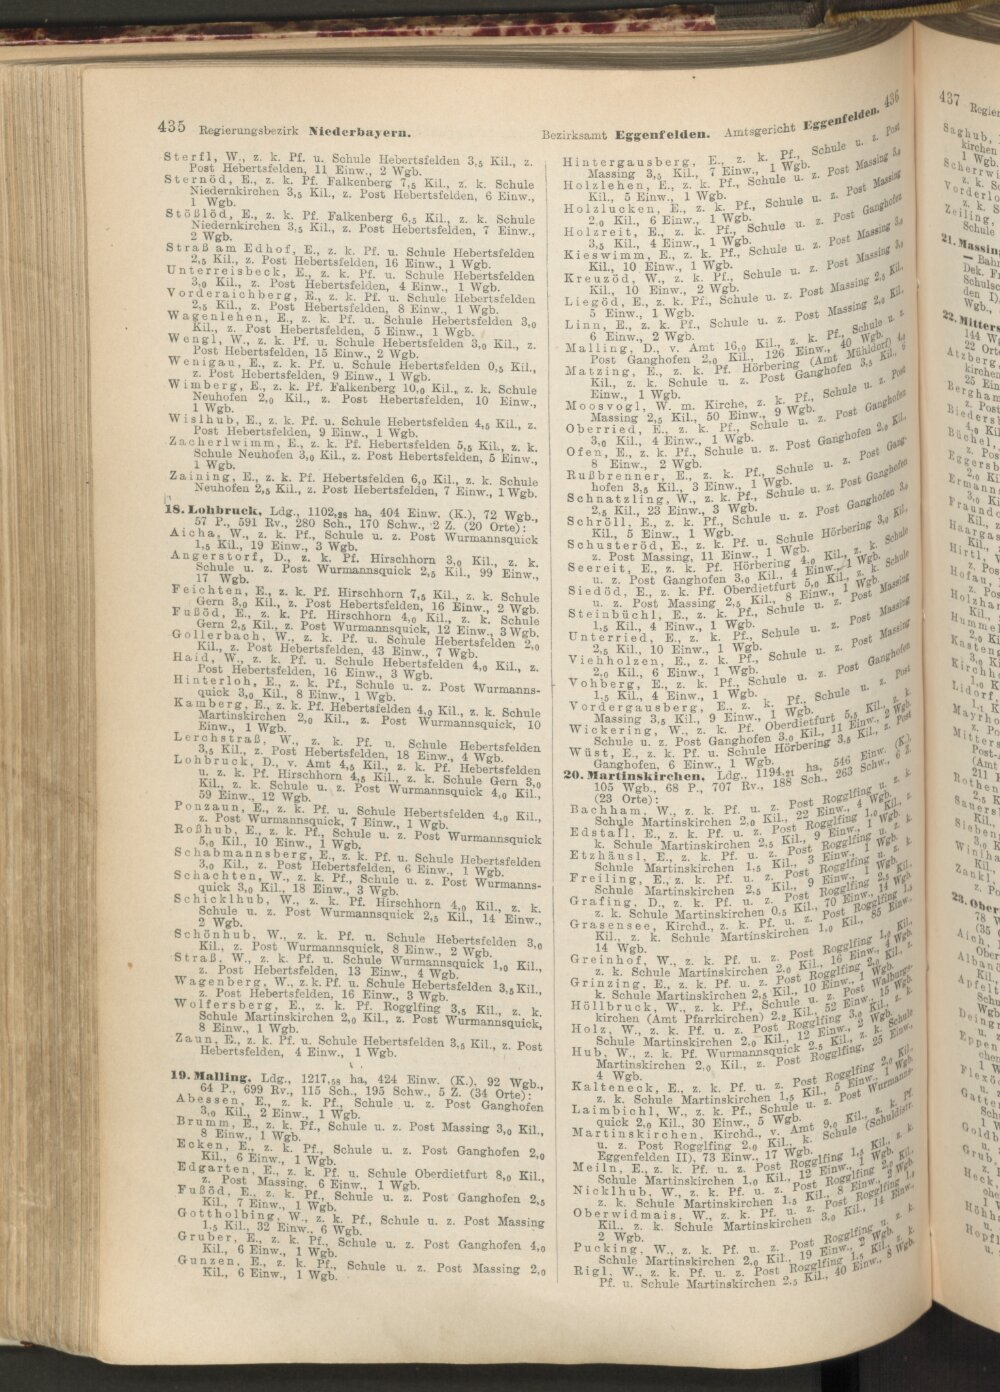 435 Regierungsbezirk Niederbayern.
Sterfl, W., z. k. Pf. u. Schule Hebertsfelden 3,5 Kil., z.
Post Hebertsfelden, 11 Einw., 2 Wgb.
Sternöd, E., z. k. Pf. Falkenberg 7,5 Kil., z. k. Schule
Niedernkirchen 3,5 Kil., z. Post Hebertsfelden, 6 Einw.,
1 Wgb.
Stößlöd, E., z. k. Pf. Falkenberg 6,5 Kil., z. k. Schule
Niedernkirchen 3,5 Kil., z. Post Hebertsfelden, 7 Einw.,
2 Wgb.
Straß am Edhof, E., z. k. Pf. u. Schule Hebertsfelden
2,5 Kil., z. Post Hebertsfelden, 16 Einw., 1 Wgb.
Unterreisbeck, E., z. k. Pf. u. Schule Hebertsfelden
3,0 Kil., z. Post Hebertsfelden, 4 Einw., 1 Wgb.
Vorderaichberg, E., z. k. Pf. u. Schule Hebertsfelden
2,5 Kil., z. Post Hebertsfelden, 8 Einw., 1 Wgb.
Wagenlehen, E., z. k. Pf. u. Schule Hebertsfelden 3,0
Kil., z. Post Hebertsfelden, 5 Einw., 1 Wgb.
Wengl, W., z. k. Pf. u. Schule Hebertsfelden 3,0 Kil., z.
Post Hebertsfelden, 15 Einw., 2 Wgb.
Wenigau, E., z. k. Pf. u. Schule Hebertsfelden 0,5 Kil.,
z. Post Hebertsfelden, 9 Einw., 1 Wgb.
Wimberg, E., z. k. Pf. Falkenberg 10,0 Kil., z. k. Schule
Neuhofen 2,0 Kil., z. Post Hebertsfelden, 10 Einw.,
1 Wgb.
Wislhub, E., z. k. Pf. u. Schule Hebertsfelden 4,5 Kil., z.
Post Hebertsfelden, 9 Einw., 1 Wgb.
Zacherlwimm, E., z. k. Pf. Hebertsfelden 5,5 Kil., z. k.
Schule Neuhofen 3,0 Kil., z. Post Hebertsfelden, 5 Einw.,
1 Wgb.
Zaining, E., z. k. Pf. Hebertsfelden 6,0 Kil., z. k. Schule
Neuhofen 2,5 Kil., z. Post Hebertsfelden, 7 Einw., 1 Wgb.
18. Lohbruck, Ldg., 1102,28 ha, 404 Einw. (K.), 72 Wgb.,
57 P., 591 Rv., 280 Sch., 170 Schw., 2 Z. (20 Orte):
Aicha, W., z. k. Pf., Schule u. z. Post Wurmannsquick
1,5 Kil., 19 Einw., 3 Wgb.
Angerstorf, D., z. k. Pf. Hirschhorn 3,0 Kil., z. k.
Schule u. z. Post Wurmannsquick 2,5 Kil., 99 Einw.,
17 Wgb.
Feichten, E., z. k. Pf. Hirschhorn 7,5 Kil., z. k. Schule
Gern 3,0 Kil., z. Post Hebertsfelden, 16 Einw., 2 Wgb.
Fußöd, E., z. k. Pf. Hirschhorn 4,0 Kil., z. k. Schule
Gern 2,5 Kil., z. Post Wurmannsquick, 12 Einw., 3 Wgb.
Gollerbach, W., z. k. Pf. u. Schule Hebertsfelden 2,0
Kil., z. Post Hebertsfelden, 43 Einw., 7 Wgb.
Haid, W., z. k. Pf. u. Schule Hebertsfelden 4,0 Kil., z.
Post Hebertsfelden, 16 Einw., 3 Wgb.
Hinterloh, E., z. k. Pf., Schule u. z. Post Wurmanns-
quick 3,0 Kil., 8 Einw., 1 Wgb.
Kamberg, E., z. k. Pf. Hebertsfelden 4,0 Kil., z. k. Schule
Martinskirchen 2,0 Kil., z. Post Wurmannsquick, 10
Einw., 1 Wgb.
Lerchstraß, W., z. k. Pf. u. Schule Hebertsfelden
3,5 Kil., z. Post Hebertsfelden, 18 Einw., 4 Wgb.
Lohbruck, D., v. Amt 4,5 Kil., z. k. Pf. Hebertsfelden
u. z. k. Pf. Hirschhorn 4,5 Kil., z. k. Schule Gern 3,0
Kil., z. k. Schule u. z. Post Wurmannsquick 4,0 Kil.,
59 Einw., 12 Wgb.
Ponzaun, E., z. k. Pf. u. Schule Hebertsfelden 4,0 Kil.,
z. Post Wurmannsquick, 7 Einw., 1 Wgb.
Roßhub, E., z. k. Pf., Schule u. z. Post Wurmannsquick
5,0 Kil., 10 Einw., 1 Wgb.
Schabmannsberg, E., z. k. Pf. u. Schule Hebertsfelden
3,0 Kil., z. Post Hebertsfelden, 6 Einw., 1 Wgb.
Schachten, W., z. k. Pf., Schule u. z. Post Wurmanns-
quick 3,0 Kil., 18 Einw., 3 Wgb.
Schicklhub, W., z. k. Pf. Hirschhorn 4,0 Kil., z. k.
Schule u. z. Post Wurmannsquick 2,5 Kil., 14 Einw.,
2 Wgb.
Schönhub, W., z. k. Pf. u. Schule Hebertsfelden 3,0
Kil., z. Post Wurmannsquick, 8 Einw., 2 Wgb.
Straß, W., z. k. Pf. u. Schule Wurmannsquick 1,0 Kil.,
z. Post Hebertsfelden, 13 Einw., 4 Wgb.
Wagenberg, W., z. k. Pf. u. Schule Hebertsfelden 3,5 Kil.,
z. Post Hebertsfelden, 16 Einw., 3 Wgb.
Wolfersberg, E., z. k. Pf. Rogglfing 3,5 Kil., z. k.
Schule Martinskirchen 2,0 Kil., z. Post Wurmannsquick,
8 Einw., 1 Wgb.
Zaun, E., z. k. Pf. u. Schule Hebertsfelden 3,5 Kil., z. Post
Hebertsfelden, 4 Einw., 1 Wgb.
19. Malling, Ldg., 1217,58 ha, 424 Einw. (K.), 92 Wgb.,
64 P., 699 Rv., 115 Sch., 195 Schw., 5 Z. (34 Orte):
Abessen, E., z. k. Pf., Schule u. z. Post Ganghofen
3,0 Kil., 2 Einw., 1 Wgb.
Brumm, E., z. k. Pf., Schule u. z. Post Massing 3,0 Kil.,
8 Einw., 1 Wgb.
Ecken, E., z. k. Pf., Schule u. z. Post Ganghofen 2,0
Kil., 6 Einw., 1 Wgb.
Edgarten, E., z. k. Pf. u. Schule Oberdietfurt 8,0 Kil.,
z. Post Massing, 6 Einw., 1 Wgb.
Fußöd, E., z. k. Pf., Schule u. z. Post Ganghofen 2,5
Kil., 7 Einw., 1 Wgb.
Gottholbing, W., z. k. Pf., Schule u. z. Post Massing
1,5 Kil., 32 Einw., 6 Wgb.
Gruber, E., z. k. Pf., Schule u. z. Post Ganghofen 4,0
Kil., 6 Einw., 1 Wgb.
Gunzen, E., z. k. Pf., Schule u. z. Post Massing 2,0
Kil., 6 Einw., 1 Wgb.
Bezirksamt Eggenfelden. Amtsgericht Eggenfelden. 436
Hintergausberg, E., z. k. Pf., Schule u. z. Post
Massing 3,5 Kil., 7 Einw., 1 Wgb.
Holzlehen, E., z. k. Pf., Schule u. z. Post Massing 3,0
Kil., 5 Einw., 1 Wgb.
Holzlucken, E., z. k. Pf., Schule u. z. Post Massing
2,0 Kil., 6 Einw., 1 Wgb.
Holzreit, E., z. k. Pf., Schule u. z. Post Ganghofen
3,5 Kil., 4 Einw., 1 Wgb.
Kieswimm, E., z. k. Pf., Schule u. z. Post Massing 3,0
Kil., 10 Einw., 1 Wgb.
Kreuzöd, W., z. k. Pf., Schule u. z. Post Massing 3,0
Kil., 10 Einw., 2 Wgb.
Liegöd, E., z. k. Pf., Schule u. z. Post Massing 2,5 Kil.,
5 Einw., 1 Wgb.
Linn, E., z. k. Pf., Schule u. z. Post Massing 2,0 Kil.,
6 Einw., 2 Wgb.
Malling, D., v. Amt 16,0 Kil., z. k. Pf., Schule u. z.
Post Ganghofen 2,0 Kil., 126 Einw., 40 Wgb.
Matzing, E., z. k. Pf. Hörbering (Amt Mühldorf) 4,0
Kil., z. k. Schule u. z. Post Ganghofen 3,5 Kil., 6
Einw., 1 Wgb.
Moosvogl, W. m. Kirche, z. k. Pf., Schule u. z. Post
Massing 2,5 Kil., 50 Einw., 9 Wgb.
Oberried, E., z. k. Pf., Schule u. z. Post Ganghofen
3,0 Kil., 4 Einw., 1 Wgb.
Ofen, E., z. k. Pf., Schule u. z. Post Ganghofen 2,0 Kil.,
8 Einw., 2 Wgb.
Rußbrenner, E., z. k. Pf., Schule u. z. Post Gang-
hofen 3,5 Kil., 3 Einw., 1 Wgb.
Schnatzling, W., z. k. Pf., Schule u. z. Post Ganghofen
2,5 Kil., 23 Einw., 3 Wgb.
Schröll, E., z. k. Pf., Schule u. z. Post Ganghofen 3,0
Kil., 5 Einw., 1 Wgb.
Schusteröd, E., z. k. Pf. u. Schule Hörbering 3,0 Kil.,
z. Post Massing, 11 Einw., 1 Wgb.
Seereit, E., z. k. Pf. Hörbering 4,0 Kil., z. k. Schule
u. z. Post Ganghofen 3,0 Kil., 4 Einw., 1 Wgb.
Siedöd, E., z. k. Pf. Oberdietfurt 5,0 Kil., z. k. Schule
u. z. Post Massing 2,5 Kil., 8 Einw., 1 Wgb.
Steinbüchl, E., z. k. Pf., Schule u. z. Post Massing
1,5 Kil., 4 Einw., 1 Wgb.
Unterried, E., z. k. Pf., Schule u. z. Post Massing
2,5 Kil., 10 Einw., 1 Wgb.
Viehholzen, E., z. k. Pf., Schule u. z. Post Massing
2,0 Kil., 6 Einw., 1 Wgb.
Vohberg, E., z. k. Pf., Schule u. z. Post Ganghofen
1,5 Kil., 4 Einw., 1 Wgb.
Vordergausberg, E., z. k. Pf., Schule u. z. Post
Massing 3,5 Kil., 9 Einw., 1 Wgb.
Wickering, W., z. k. Pf. Oberdietfurt 5,5 Kil., z. k.
Schule u. z. Post Ganghofen 3,0 Kil., 11 Einw., 2 Wgb.
Wüst, E., z. k. Pf. u. Schule Hörbering 3,5 Kil., z. Post
Ganghofen, 6 Einw., 1 Wgb.
20. Martinskirchen, Ldg., 1194,21 ha, 546 Einw. (K.)
105 Wgb., 68 P., 707 Rv., 188 Sch., 263 Schw., 6 Z.
(23 Orte):
Bachham, W., z. k. Pf. u. z. Post Rogglfing u. z. k.
Schule Martinskirchen 2,0 Kil., 22 Einw., 4 Wgb.
Edstall, E., z. k. Pf. u. z. Post Rogglfing 1,0 Kil., z.
k. Schule Martinskirchen 2,5 Kil., 9 Einw., 1 Wgb.
Etzhäusl, E., z. k. Pf. u. z. Post Rogglfing u. z. k.
Schule Martinskirchen 1,5 Kil., 3 Einw., 1 Wgb.
Freiling, E., z. k. Pf. u. z. Post Rogglfing u. z. k.
Schule Martinskirchen 2,5 Kil., 9 Einw., 1 Wgb.
Grafing, D., z. k. Pf. u. z. Post Rogglfing 2,5 Kil.,
z. k. Schule Martinskirchen 0,5 Kil., 70 Einw., 14 Wgb.
Grasensee, Kirchd., z. k. Pf. u. z. Post Rogglfing 1,5
Kil., z. k. Schule Martinskirchen 1,0 Kil., 85 Einw.,
14 Wgb.
Greinhof, W., z. k. Pf. u. z. Post Rogglfing 1,0 Kil.,
z. k. Schule Martinskirchen 2,0 Kil., 16 Einw., 4 Wgb.
Grinzing, E., z. k. Pf. u. z. Post Rogglfing 2,0 Kil., z.
k. Schule Martinskirchen 2,5 Kil., 10 Einw., 1 Wgb.
Höllbruck, W., z. k. Pf., Schule u. z. Post Walburgs-
kirchen (Amt Pfarrkirchen) 2,2 Kil., 52 Einw., 15 Wgb.
Holz, W., z. k. Pf. u. z. Post Rogglfing 3,0 Kil., z. k.
Schule Martinskirchen 2,0 Kil., 12 Einw., 2 Wgb.
Hub, W., z. k. Pf. Wurmannsquick 2,5 Kil., z. k. Schule
Martinskirchen 2,0 Kil., z. Post Rogglfing, 25 Einw.,
4 Wgb.
Kalteneck, E., z. k. Pf. u. z. Post Rogglfing 2,0 Kil.,
z. k. Schule Martinskirchen 1,5 Kil., 5 Einw., 1 Wgb.
Laimbichl, W., z. k. Pf., Schule u. z. Post Wurmanns-
quick 2,0 Kil., 30 Einw., 5 Wgb.
Martinskirchen, Kirchd., v. Amt 9,0 Kil., z. k. Pf.
u. z. Post Rogglfing 2,0 Kil., k. Schule (Schuldistr.
Eggenfelden II), 73 Einw., 17 Wgb.
Meiln, E., z. k. Pf. u. z. Post Rogglfing 1,5 Kil., z. k.
Schule Martinskirchen 1,0 Kil., 12 Einw., 1 Wgb.
Nicklhub, W., z. k. Pf. u. z. Post Rogglfing 2,0 Kil.,
z. k. Schule Martinskirchen 1,5 Kil., 8 Einw., 2 Wgb.
Oberwidmais, W., z. k. Pf. u. z. Post Rogglfing 1,0
Kil., z. k. Schule Martinskirchen 3,0 Kil., 14 Einw.,
2 Wgb.
Pucking, W., z. k. Pf. u. z. Post Rogglfing u. z. k.
Schule Martinskirchen 2,0 Kil., 19 Einw., 2 Wgb.
Rigl, W., z. k. Pf. u. z. Post Rogglfing 1,5 Kil., z. k.
Pf. u. Schule Martinskirchen 2,5 Kil., 40 Einw., 8 Wgb.
437 Regier
Saghub,
kirchen
1 Wgb.
Zeiling,
Schule
21. Massin
— Bah
Dek.
22. Mitters
144 W
22 Ort
Atzberg
kirchen
25 Ein
Bergham
z. Post
Büchel,
Eggersb
Ermann
Fraund
Haargas
Hirtl,
Hofau,
Holzha
Kasteng
Kirchh
Lidorf,
Mayrho
Mitters
(Amt
Rothen
Sauers
Sieben
23. Ober
78 W
Aich,
Ober
Apfelt
Eppen
Flexö
Gatte
Goldb
Grub,
Heck,
Höhh
Hopfl